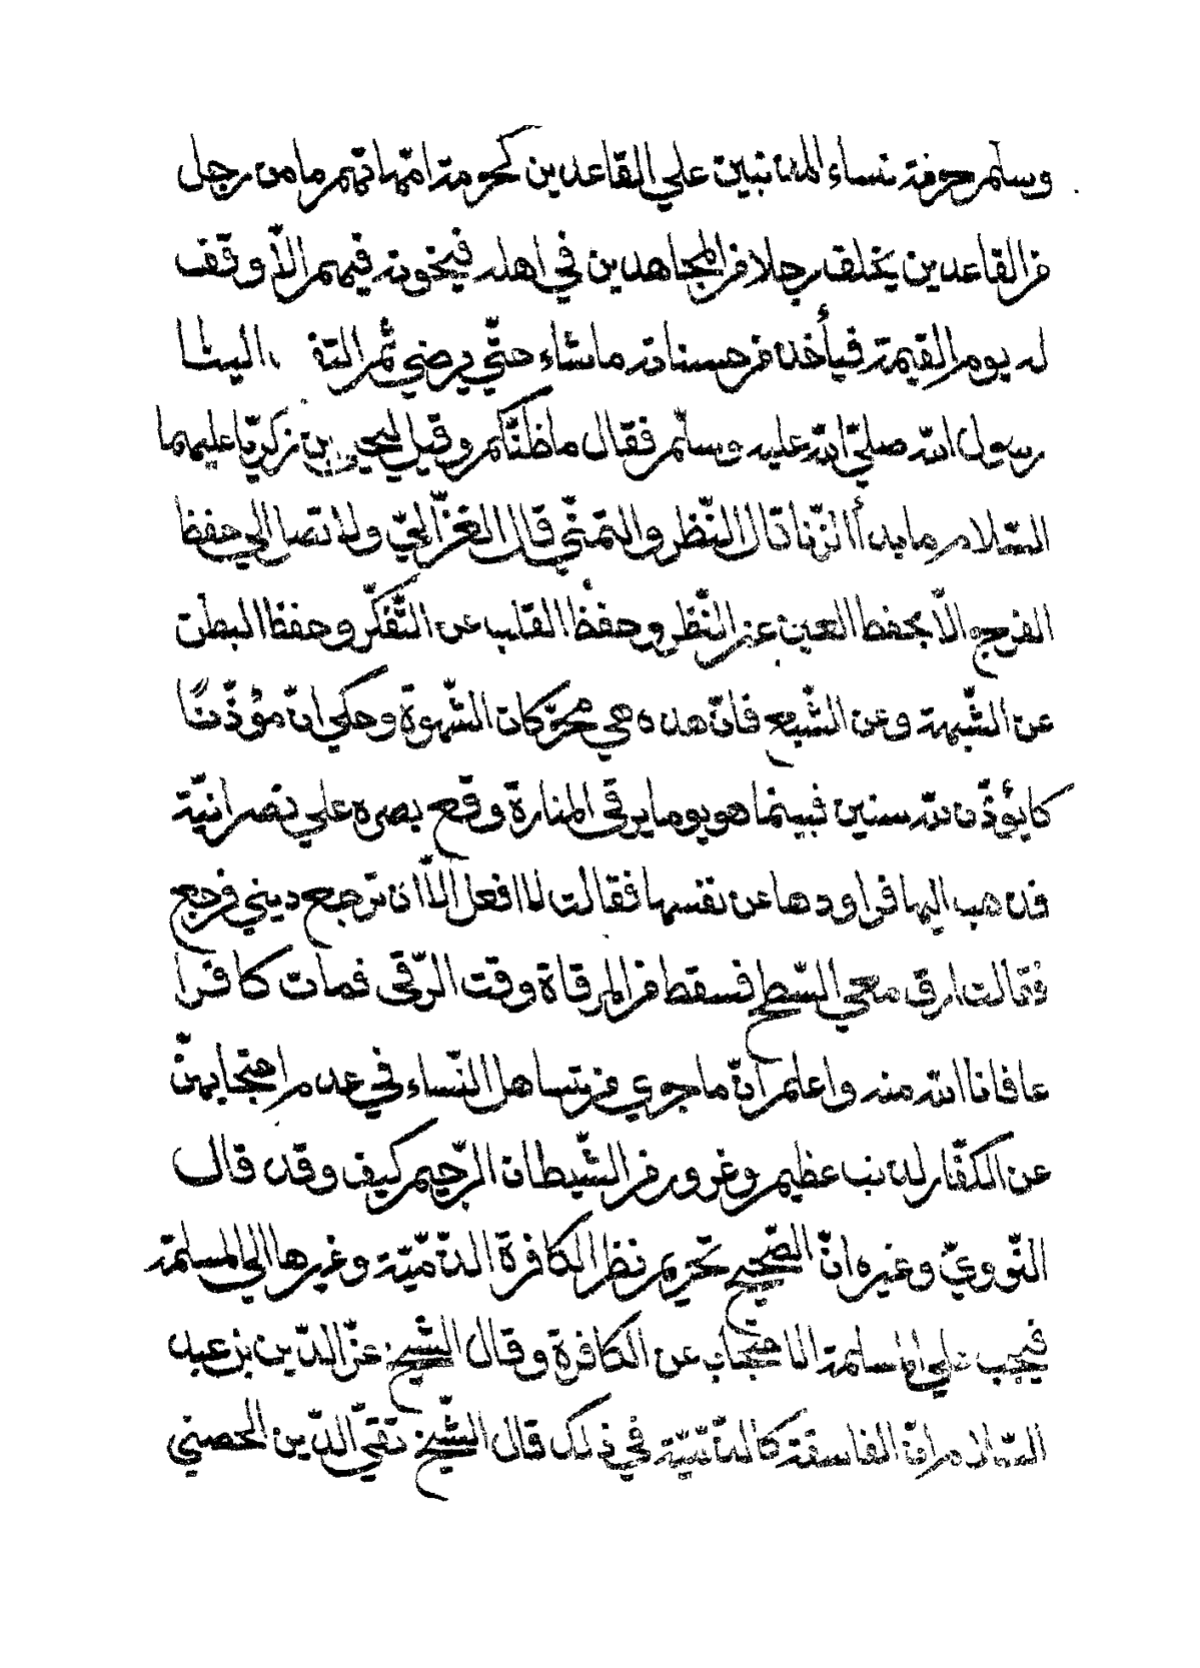 وسلّم حرمة نساء المذنبين علي القاعدين كحرمة امّهاتهم ما من رجل
من القاعدين يخلف رجلا من المجاهدين في اهله فيخونه فيهم الّا وقف
له يوم القيمة فيأخذ من حسناته ما شاء حتّي يرضي ثمّ التفت الينا
رسول الله صلّي الله عليه وسلّم فقال ما ظنّكم وقيل ليحيي بن زكريّا عليهما
السّلام ما بدأ الزّنا قال النّظر والتمنّي قال الغزالي ولا تصل الي حفظ
الفرج الّا بحفظ العين عن النّظر وحفظ القلب عن التّفكّر وحفظ البطن
عن الشّبهة وعن الشّبع فانّ هذه هي محرّكات الشّهوة وحكي انّ مؤذّنًا
كا يؤذّن لله سنين فبينما هو يوما يرقي المنارة وقع بصره علي نصرانيّة
فذهب اليها فراودها عن نفسها فقالت لا افعل الّا ان ترجع ديني فرجع
فقالت ارق معي السّطح فسقط من المرقاة وقت الرّقي فمات كافرا
عافانا الله منه واعلم انّ ما جري من تساهل النّساء في عدم احتجابهنّ
عن الكفّار لذنب عظيم وغرور من الشّيطان الرّجيم كيف وقد قال
النّوويّ وغيره انّ الصّحيح تحريم نظر الكافرة الذّمّيّة وغيرها الي المسلمة
فيجب علي المسلمة الاحتجاب عن الكافرة وقال الشّيخ عزّ الدّين بن عبد
السّلام انّ الفاسقة كالذّمّيّة في ذلك قال الشّيخ تقيّ الدّين الحصني